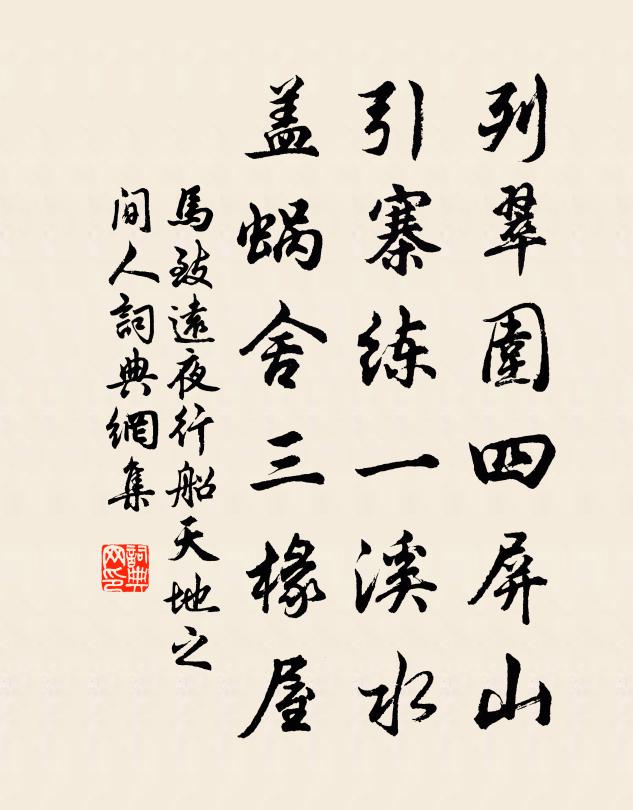 列翠圍四屏山
引寨练一溪水
盖蜗舍三椽屋
馬致遠夜行船天地之
间人詞典網集
詞典
网印